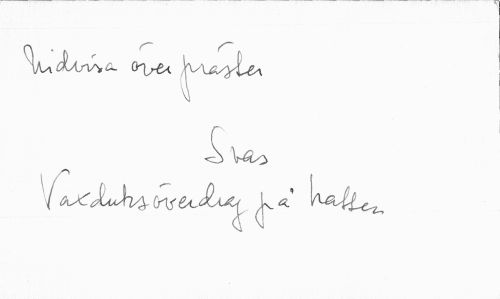 Nidvisa över präster
Svas
Vaxduksöverdrag på hatten